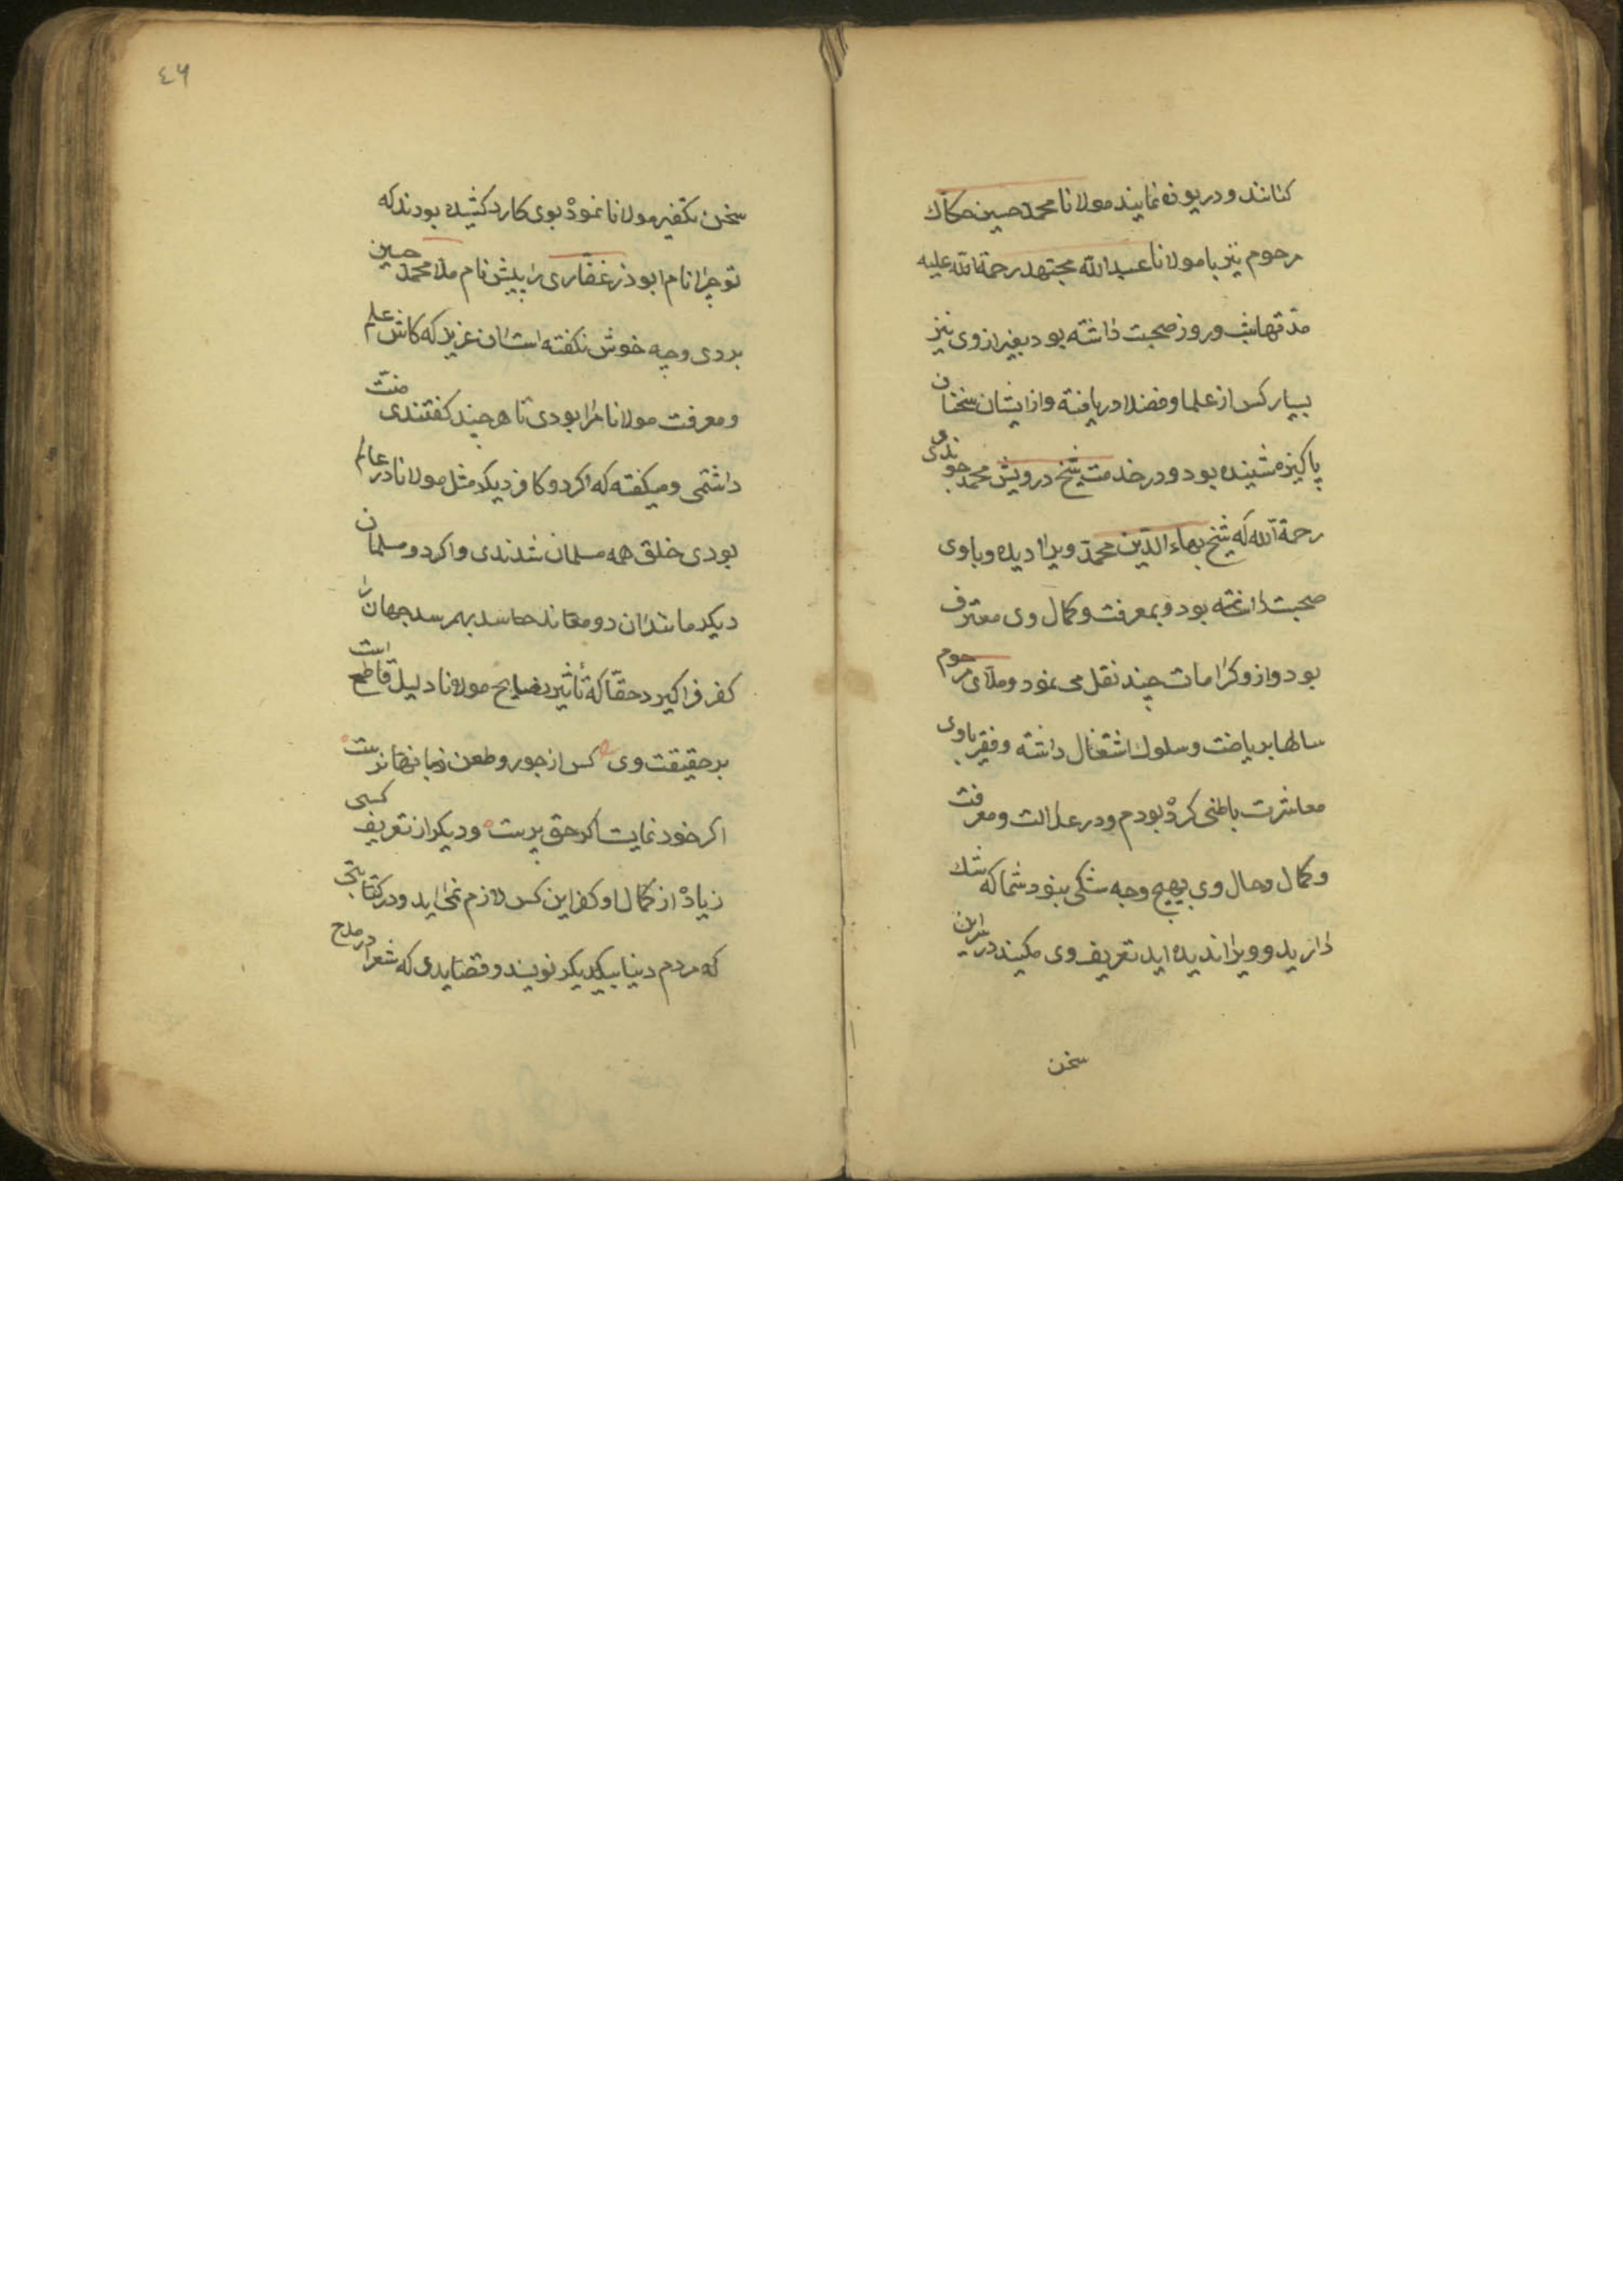 کنانند و دریوزه نمایند مولانا محمد حسین حکاک
مرحوم نیز با مولانا عبدالله مجتهد رحمة الله علیه
مدتها شب و روز صحبت داشته بود بغیر از وی نیز
بسیار کس از علما و فضلا دریافته و از ایشان سخنان
پاکیزه شنیده بود و در خدمت شیخ درویش محمد
رحمة الله که شیخ بهاء الدین محمد ویرا دیده و با وی
صحبت داشته بود و بمعرفت و کمال وی معترف
بود و از و کرامات چند نقل می نمود و ملای مرحوم
سالها بریاضت و سلوک اشتغال داشته و فقیر باوی
معاشرت باطنی کرده بودم و در عدالت و معرفت
و کمال و حال وی بهیچ وجه شکی نبود شما که شک
دارید و ویرا ندیده اید تعریف وی مکیند در این
سخن
٤٦
سخن تکفیر مولانا نموده بوی کارد کشیده بودند که
تو چرا نام ابوذر غفاری را پیش نام ملا محمد حسین
بردی و چه خوش نکفته است ان عزیز که کاش علم
و معرفت مولانا مرا بودی تا هر چند کفتندی منت
داشتمی و میکفته که اکر دو کافر دیکر مثل مولانا در عالم
بودی خلق همه مسلمان شدندی و اکر دو مسلمان
دیکر مانند ان دو معاند حاسد بهم رسد جهان را
کفر فرا کیرد حقا که تأثیر نصایح مولانا دلیل قاطع است
بر حقیقت وی کس از جور و طعن زبانها نرست
اکر خود نمایست اکر حق پرست و دیکر از تعریف کسی
زیاده از کمال او کفر این کس لازم نمی اید و در کتابتی
که مردم دنیا بیکدیکر نویسند و قصایدی که شعرا در مدح